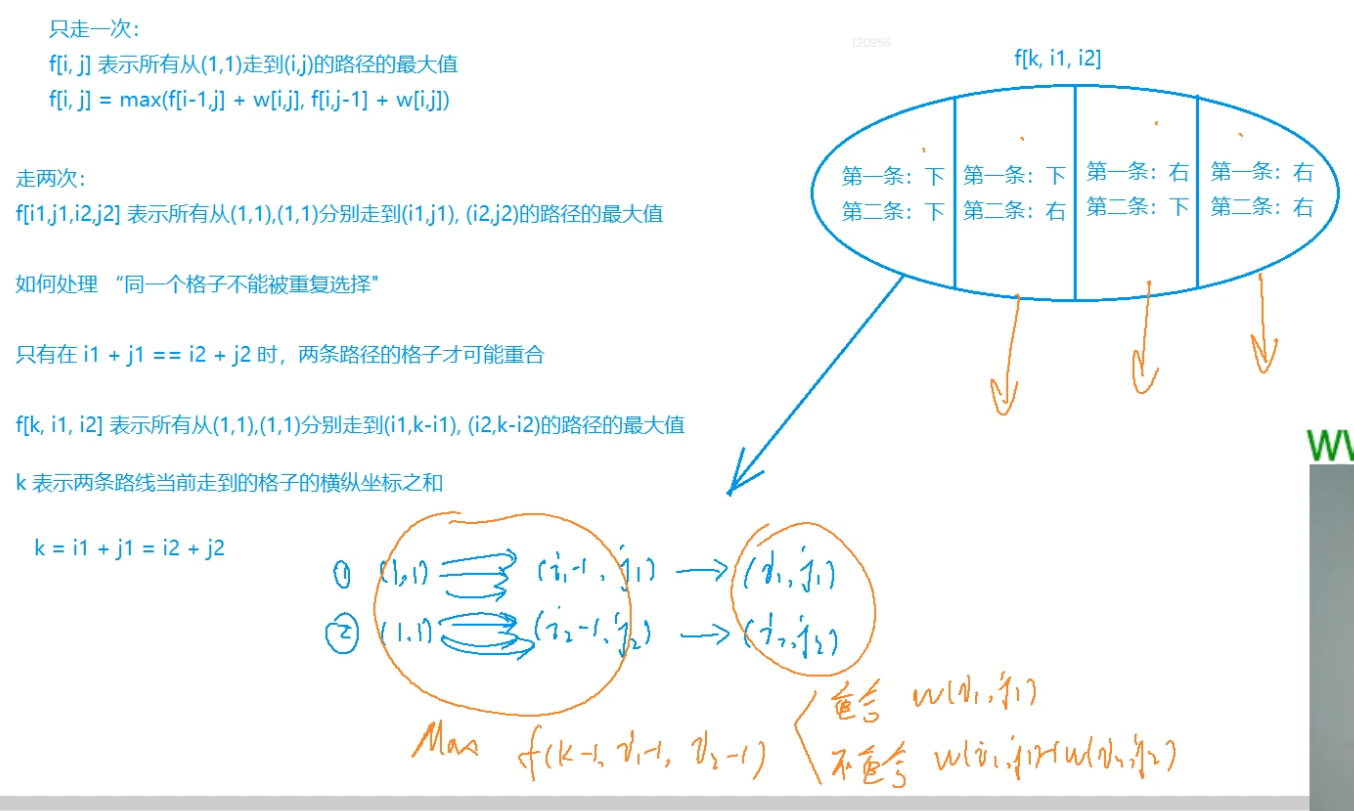 只走一次：
f[i, j] 表示所有从(1,1)走到(i,j)的路径的最大值
f[i, j] = max(f[i-1,j] + w[i,j], f[i,j-1] + w[i,j])
走两次：
f[i1,j1,i2,j2] 表示所有从(1,1),(1,1)分别走到(i1,j1), (i2,j2)的路径的最大值
如何处理 “同一个格子不能被重复选择"
只有在 i1 + j1 == i2 + j2 时，两条路径的格子才可能重合
f[k, i1, i2] 表示所有从(1,1),(1,1)分别走到(i1,k-i1), (i2,k-i2)的路径的最大值
k 表示两条路线当前走到的格子的横纵坐标之和
k = i1 + j1 = i2 + j2
120956
f[k, i1, i2]
第一条：下
第二条：下
第一条：下
第二条：右
第一条：右
第二条：下
第一条：右
第二条：右
① (1,1) (i₁-1, j₁) → (i₁, j₁)
② (1,1) (i₂-1, j₂) → (i₂, j₂)
Max f(k-1, i₁-1, i₂-1)
重合 w(i₁, j₁)
不重合 w(i₁, j₁)+w(i₂, j₂)